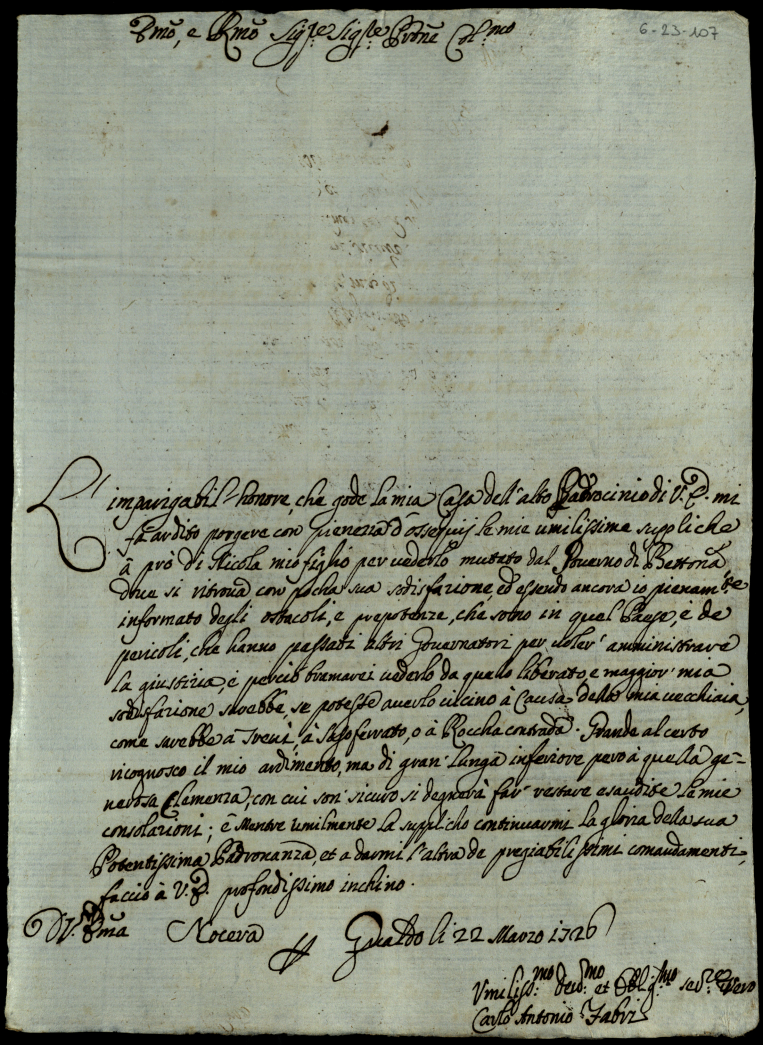 Emo, e Rmo Sigre Sigre Prone Colmo
6-23-107
L' impariggabil honore, che gode la mia Casa dell'alto Padrocinio di V. E. mi
fà ardito porgere con pienezza d'ossequij le mie umilissime suppliche
à prò di Nicola mio figlio per vederlo mutato dal Governo di Bettona
dove si ritrova con pocha sua sodisfazione, ed essendo ancora io pienamte
informato degli ostacoli, e prepotenze, che sono in quel Paese, e de
pericoli, che hanno passati altri Governatori per voler' amministrare
la giustizia, è perciò bramarei vederlo da quello liberato, e maggior' mia
sodisfazione sarebbe, se potesse averlo vicino à Causa della mia vecchiaia,
come sarebbe à Trevi, à Sassoferrato, o à Roccha contrada. Grande al certo
ricognosco il mio ardimento, ma di gran' lunga inferiore però à quella ge-
nerosa Clemenza, con cui son' sicuro si degnarà far' restare esaudite le mie
consolazioni; è Mentre umilmente la supplicho continuarmi la gloria della sua
Potentissima Padronanza, et a darmi l'altra de pregiabilissimi comandamenti,
faccio à V. E. profondissimo inchino.
D V. Ema Nocera Gualdo li 22 Marzo 1726
Umilissmo Devmo et Obligmo serre Vero
Carlo Antonio Fabri